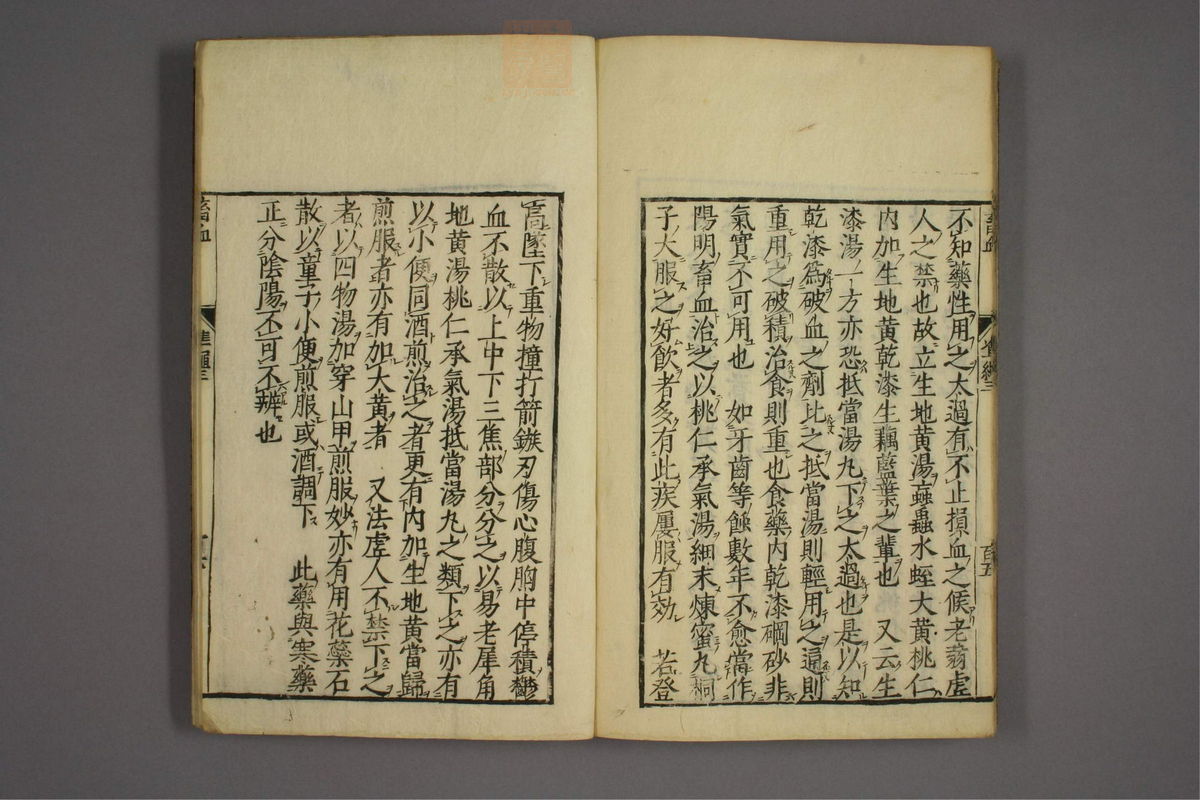 不知藥性用之太過有不止損血之候老蒻虛
人之禁也故立生地黃湯蝱蟲水蛭大黃桃仁
內加生地黃乾漆生藕藍葉之輩也　又云生
漆湯一方亦恐抵當湯丸下之太過也是以知
乾漆爲破血之劑比之抵當湯則輕用之通則
重用之破積治食則重也食藥內乾漆硇砂非
氣實不可用也　如牙齒等蝕數年不愈當作
陽明畜血治之以桃仁承氣湯細末煉蜜丸桐
子大服之好飲者多有此疾屢服有効　若登
高墜下重物撞打箭鏃刃傷心腹胸中停積鬱
血不散以上中下三焦部分分之以易老犀角
地黃湯桃仁承氣湯抵當湯丸之類下之亦有
以小便同酒煎治之者更有內加生地黃當歸
煎服者亦有加大黃者　又法虛人不禁下之
者以四物湯加穿山甲煎服妙亦有用花蘂石
散以童子小便煎服或酒調下　此藥與寒藥
正分陰陽不可不辨也